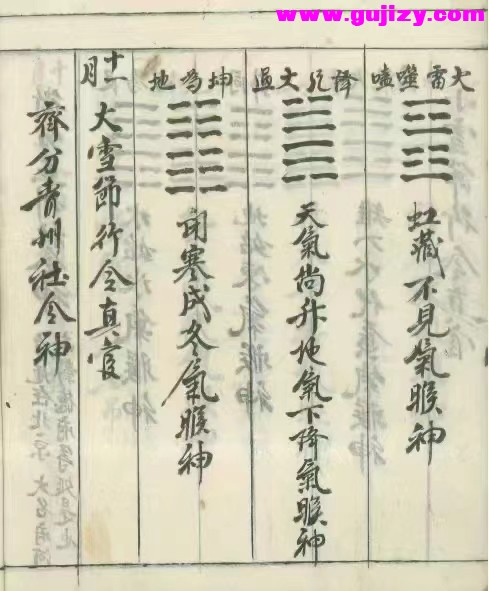 www.gujizy.com
火雷噬嗑
虹藏不見氣候神
澤風大過
天氣尚升地氣下降氣候神
坤為地
閉寒成冬氣候神
十一月
大雪節行令真官
齊分青州社令神